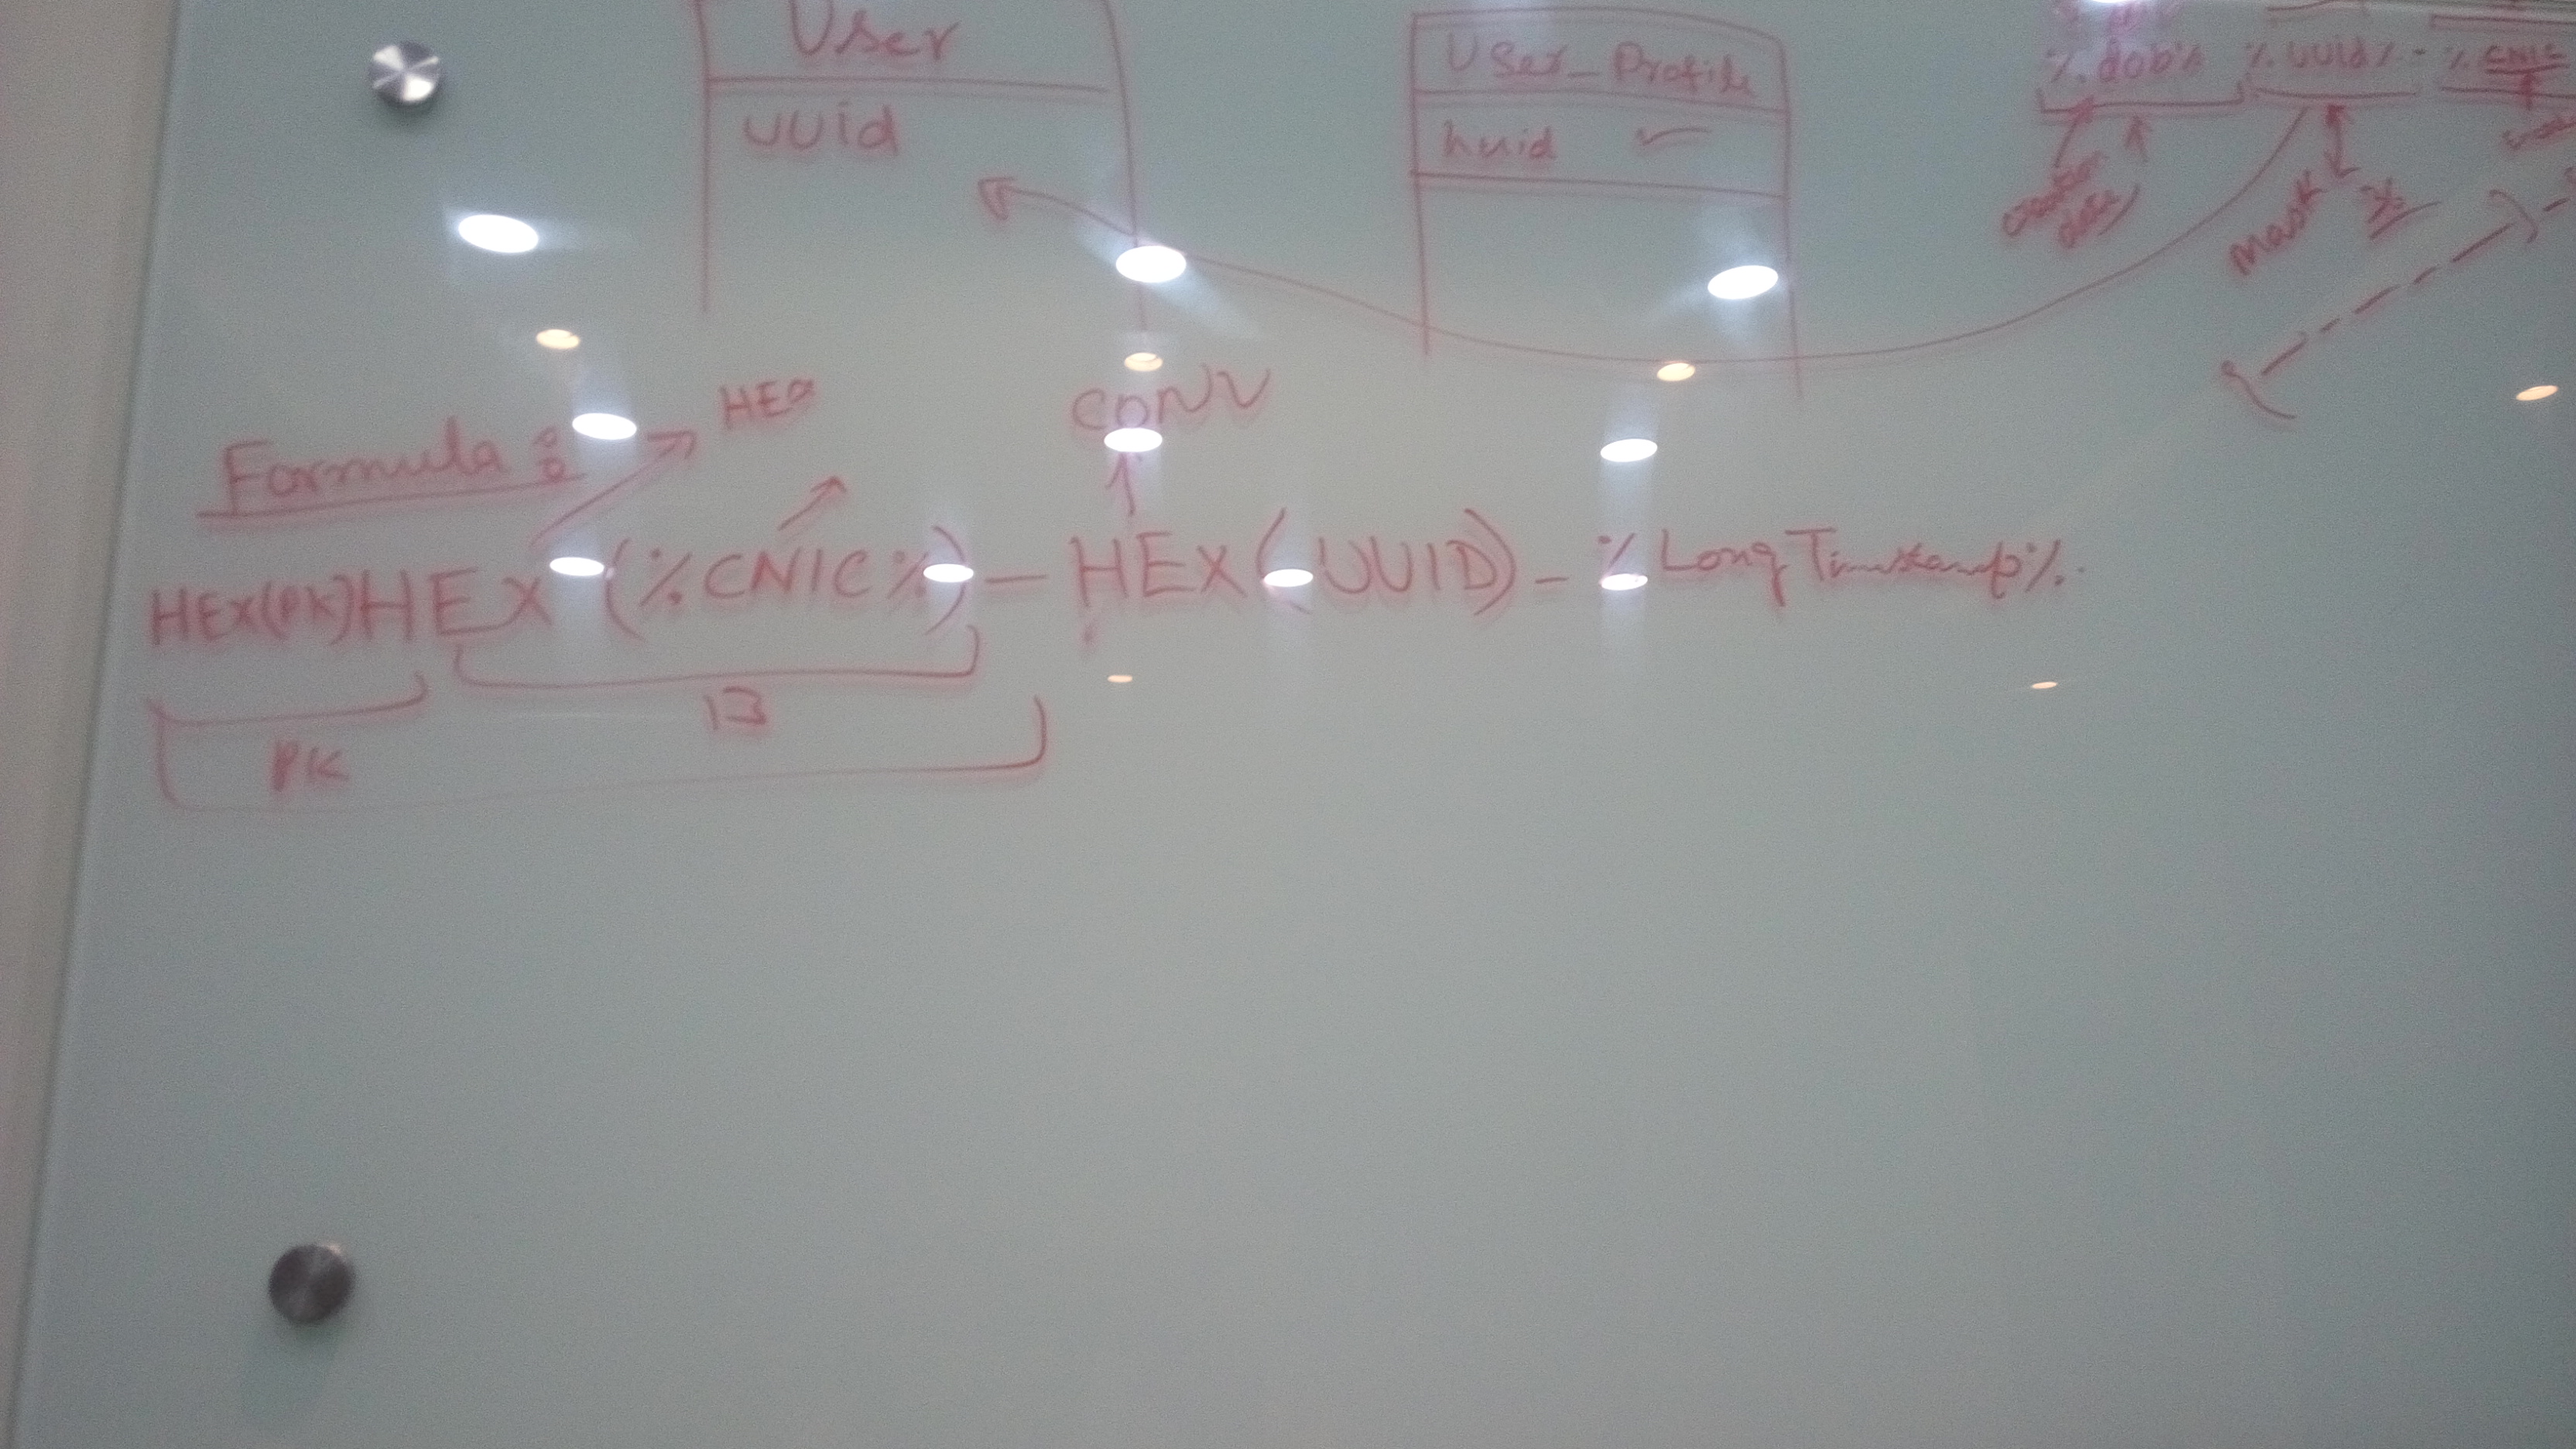 User
uuid
User_Profile
huid
%.dob% %.UUid% - %.CNIC
creation
date
mask
Formula :
HEX
CONV
HEX(PK)HEX (%CNIC%) - HEX(UUID) - % Long Timestamp%.
13
PK